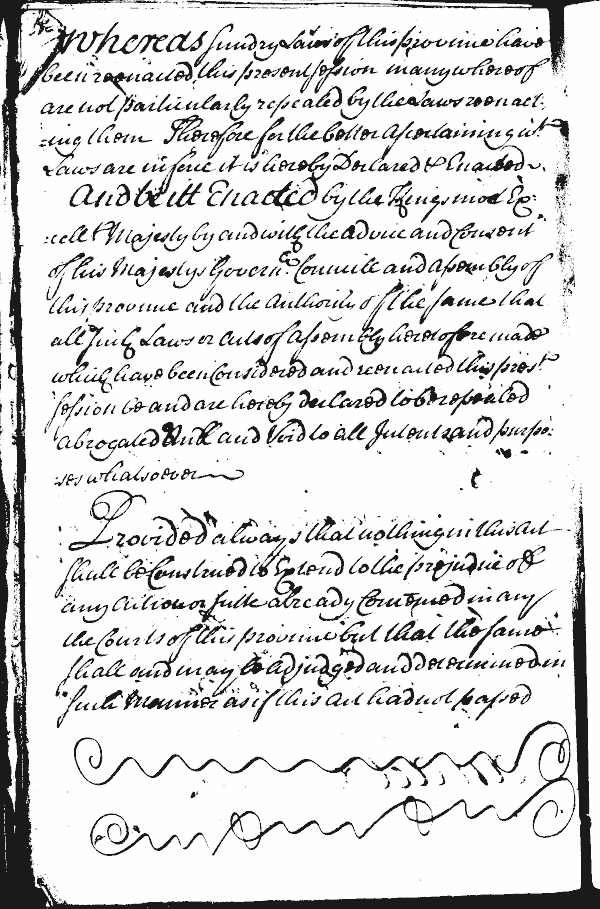 Whereas sundry Laws of this province have
been reenacted this present session many whereof
are not particularly repealed by the Laws reenact-
-ing them Therefore for the better ascertaining wt.
Laws are in force it is hereby Declared & Enacted
And be itt Enacted by the Kings most Ex-
-cellt. Majesty by and with the advice and Consent
of his Majestys Govern.r Councill and assembly of
this province and the Authority of the same that
all such Laws or acts of assembly heretofore made
which have been Considered and reenacted this pres.t
session be and are hereby declared to be repealed
abrogated Null and Void to all Intents and purpo-
-ses whatsoever
Provided always that nothing in this act
shall be Construed to Extend to the prejudice of
any action or suite already Comenced in any
the Courts of this province but that the same
shall and may be adjudged and determined in
such Manner as if this act had not passed